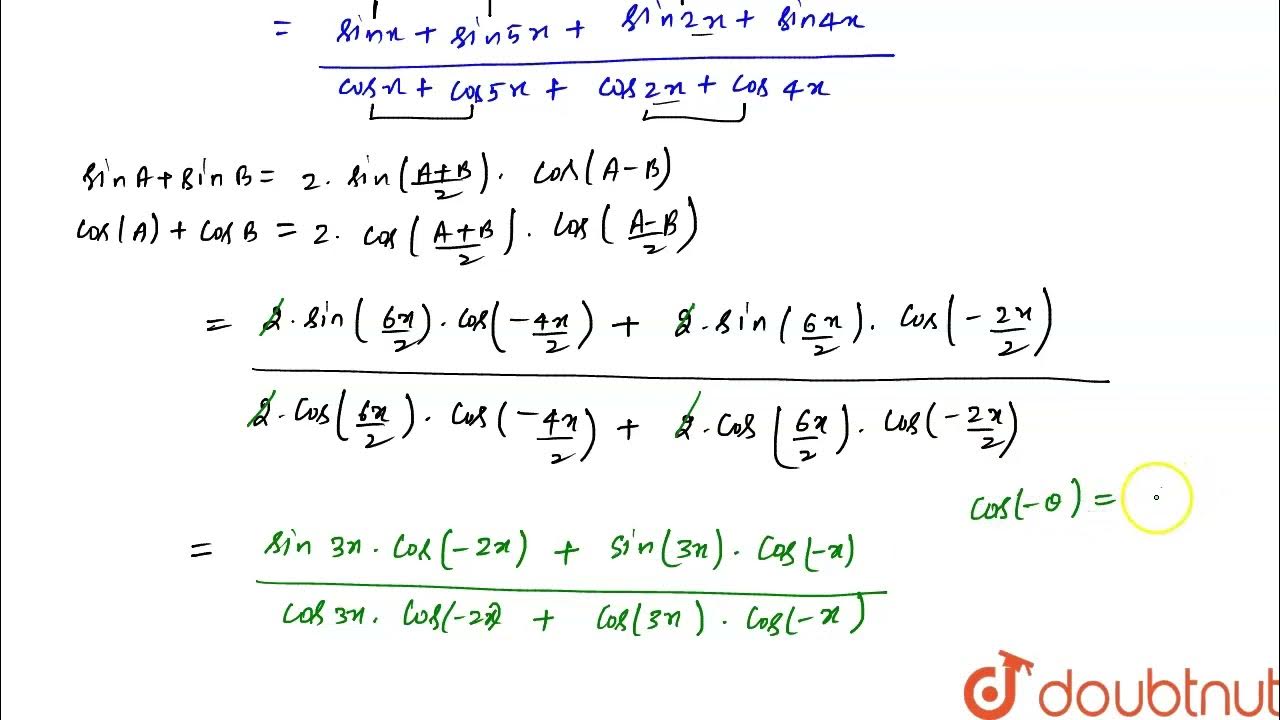 = sinx + sin5x + sin2x + sin4x
cosx + cos5x + cos2x + cos 4x
sinA + sinB = 2. sin(A+B/2). cos(A-B)
cos(A) + cosB = 2. cos(A+B/2). cos(A-B/2)
= 2. sin(6x/2). cos(-4x/2) + 2. sin(6x/2). cos(-2x/2)
2. cos(6x/2). cos(-4x/2) + 2. cos(6x/2). cos(-2x/2)
cos(-θ) =
= sin 3x. cos(-2x) + sin(3x). cos(-x)
cos 3x. cos(-2x + cos(3x). cos(-x)
doubtnut